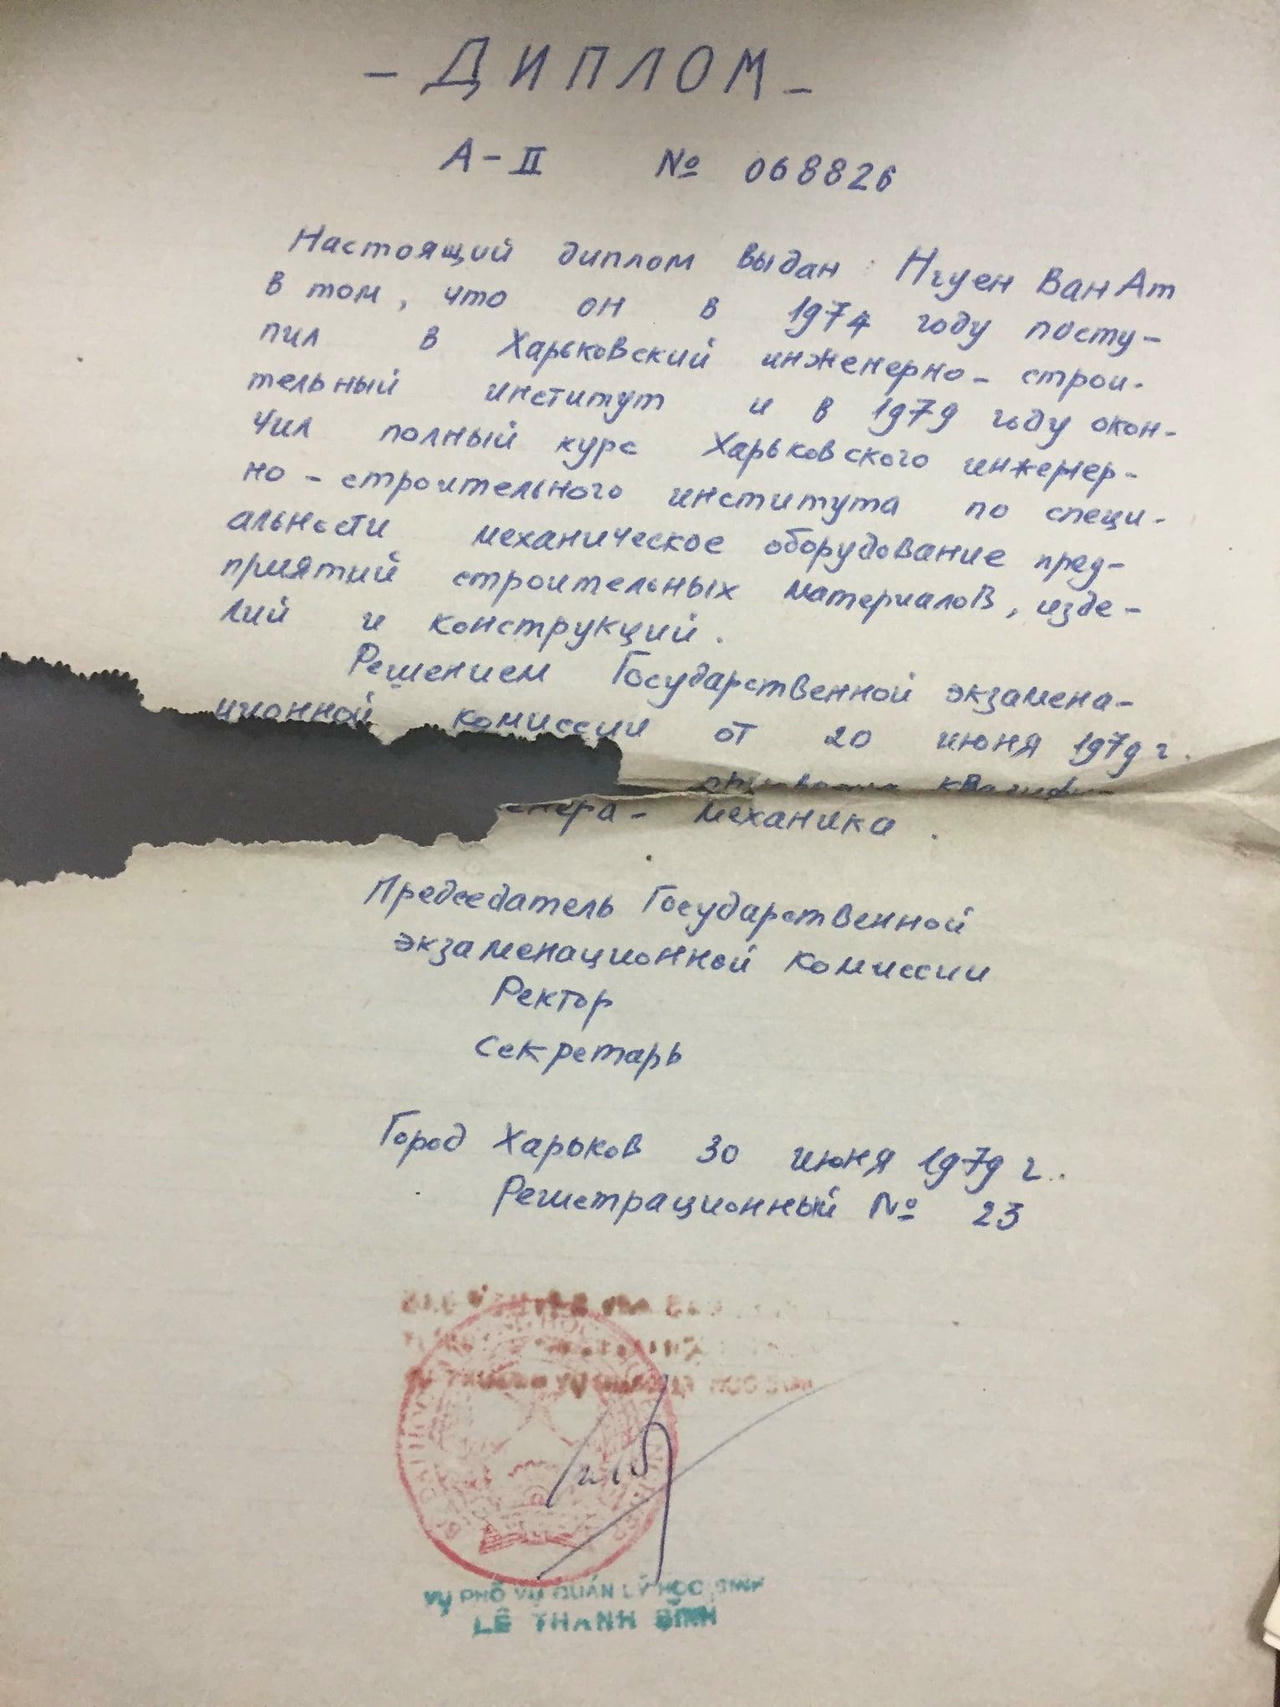 - ДИПЛОМ -
А-II № 068826
Настоящий диплом выдан Нгуен Ван Ат
в том, что он в 1974 году посту-
пил в Харьковский инженерно- строи-
тельный институт и в 1979 году окон-
чил полный курс Харьковского инженер-
но-строительного института по специ-
альности механическое оборудование пред-
приятий строительных материалов, изде-
лий и конструкций.
Решением Государственной экзамена-
ционной комиссии от 20 июня 1979 г.
механика.
Председатель Государственной
экзаменационной комиссии
Ректор
Секретарь
Город Харьков 30 июня 1979 г.
Регистрационный № 23
VỤ PHÓ VỤ QUẢN LÝ HỌC SINH
LÊ THANH BÌNH